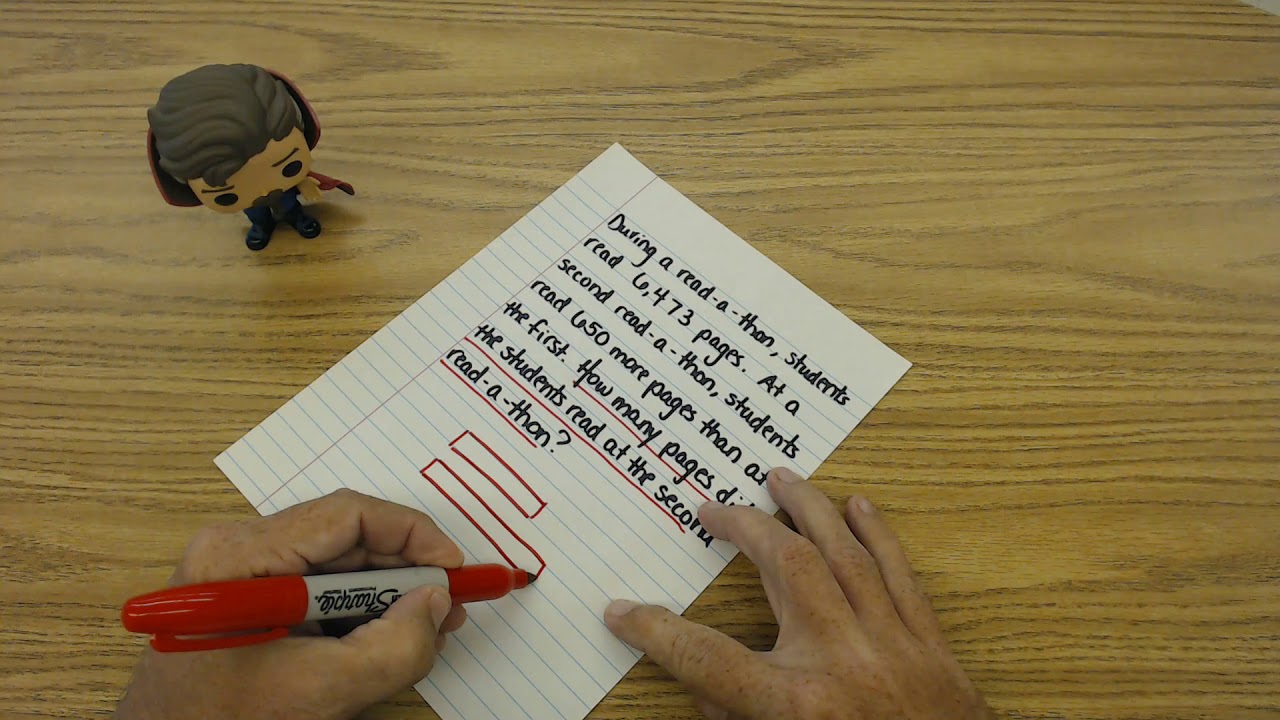 During a read-a-thon, students
read 6,473 pages. At a
second read-a-thon, students
read 650 more pages than at
the first. How many pages di
the students read at the second
read-a-thon?
Sharpie